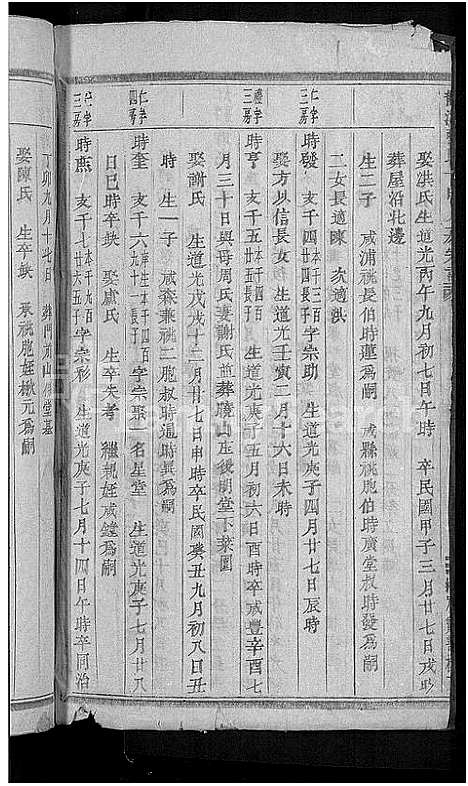 娶洪氏 生道光丙午九月初七日午時 卒民國甲子三月廿七日戌時
葬屋沿北邊
生二子 咸浦祧長伯時蓮為嗣 咸縣祧胞伯時廣堂叔時發為嗣
二女長適陳 次適洪
仁孝三房
時發 支千四百廿四 本千三百長子 字宗助 生道光庚子四月廿七日辰時
娶方以信長女 生道光壬寅二月十六日未時
禮孝三房
時亨 支千五百廿五 本千四百長子 生道光庚子五月初六日酉時卒咸豐辛酉七
月三十日與母周氏妻謝氏並葬 山庄後明堂下菜園
娶謝氏 生道光戊戌十二月廿七日申時卒民國癸丑九月初八日丑
時 生一子 咸森兼祧二胞叔時通時興為嗣
仁孝四房
時奎 支千六百九十六 本千一百長子 字宗聚 名星堂 生道光庚子七月廿八
日巳時卒缺 娶盧氏 生卒失考 繼親姪咸鐘為嗣
仁孝三房
時烝 支千七百廿六 本千九百五子 字宗彩 生道光庚子七月十四日午時卒同治
丁卯九月十七日 葬門前山 堂基
娶陳氏 生卒缺 承祧胞姪 元為嗣